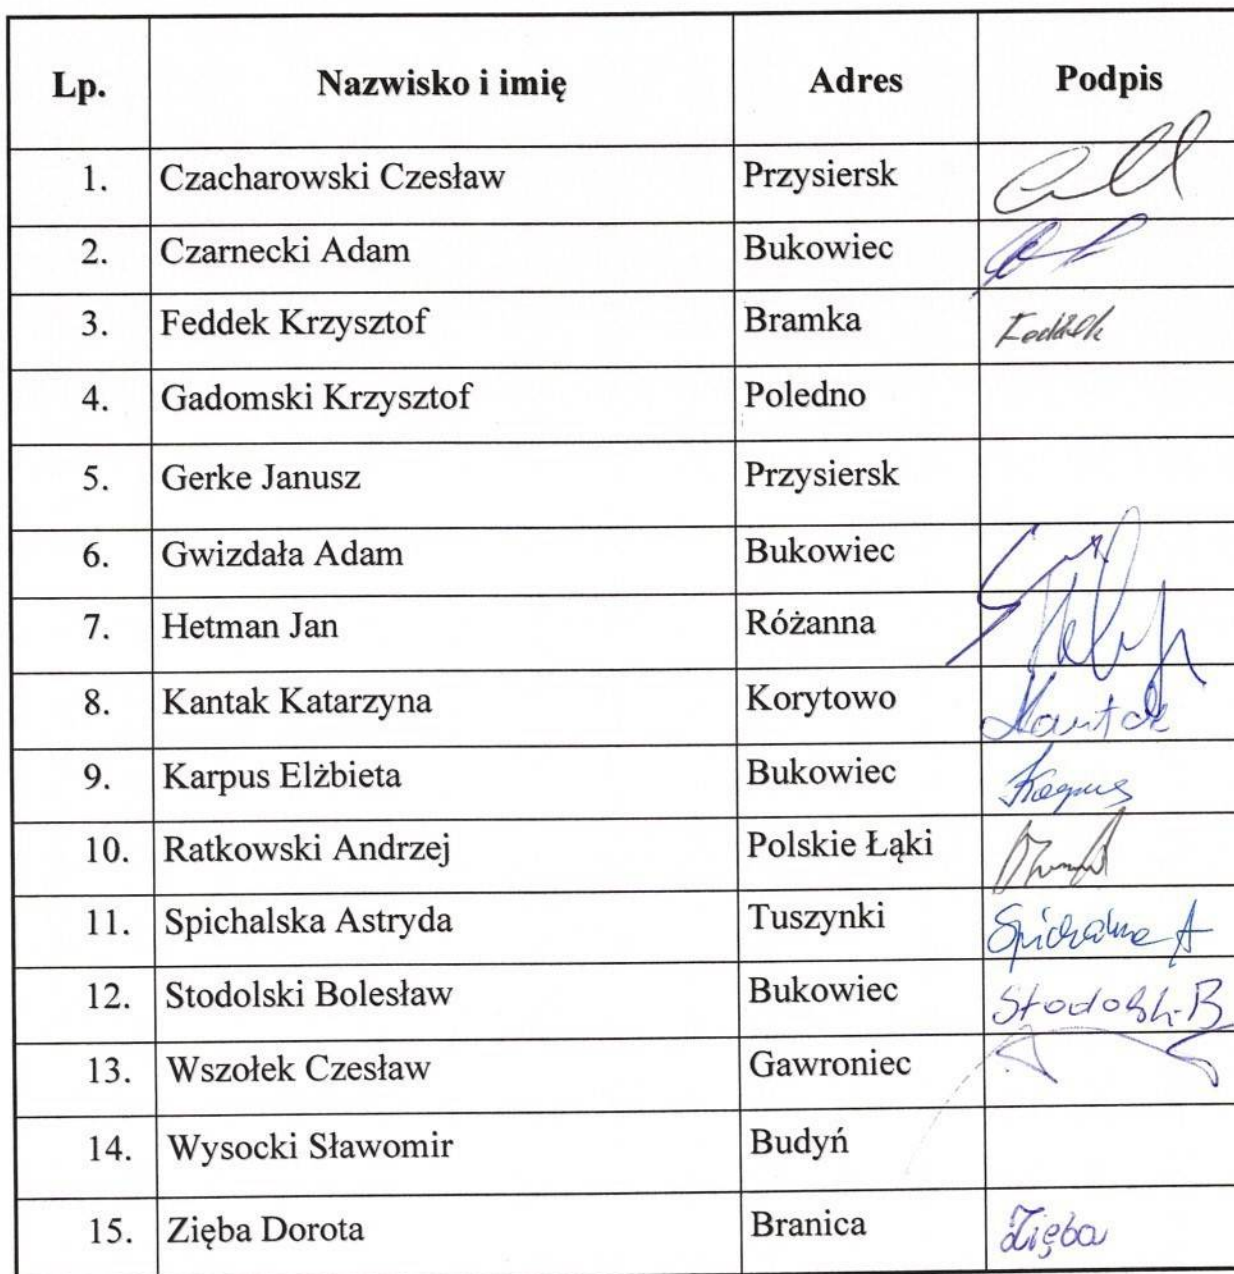 Lp. Nazwisko i imię Adres Podpis
1. Czacharowski Czesław Przysiersk
2. Czarnecki Adam Bukowiec
3. Feddek Krzysztof Bramka Feddek
4. Gadomski Krzysztof Poledno
5. Gerke Janusz Przysiersk
6. Gwizdała Adam Bukowiec
7. Hetman Jan Różanna
8. Kantak Katarzyna Korytowo Kantak
9. Karpus Elżbieta Bukowiec Karpus
10. Ratkowski Andrzej Polskie Łąki
11. Spichalska Astryda Tuszynki Spichalska A
12. Stodolski Bolesław Bukowiec Stodolski B
13. Wszołek Czesław Gawroniec
14. Wysocki Sławomir Budyń
15. Zięba Dorota Branica Zięba